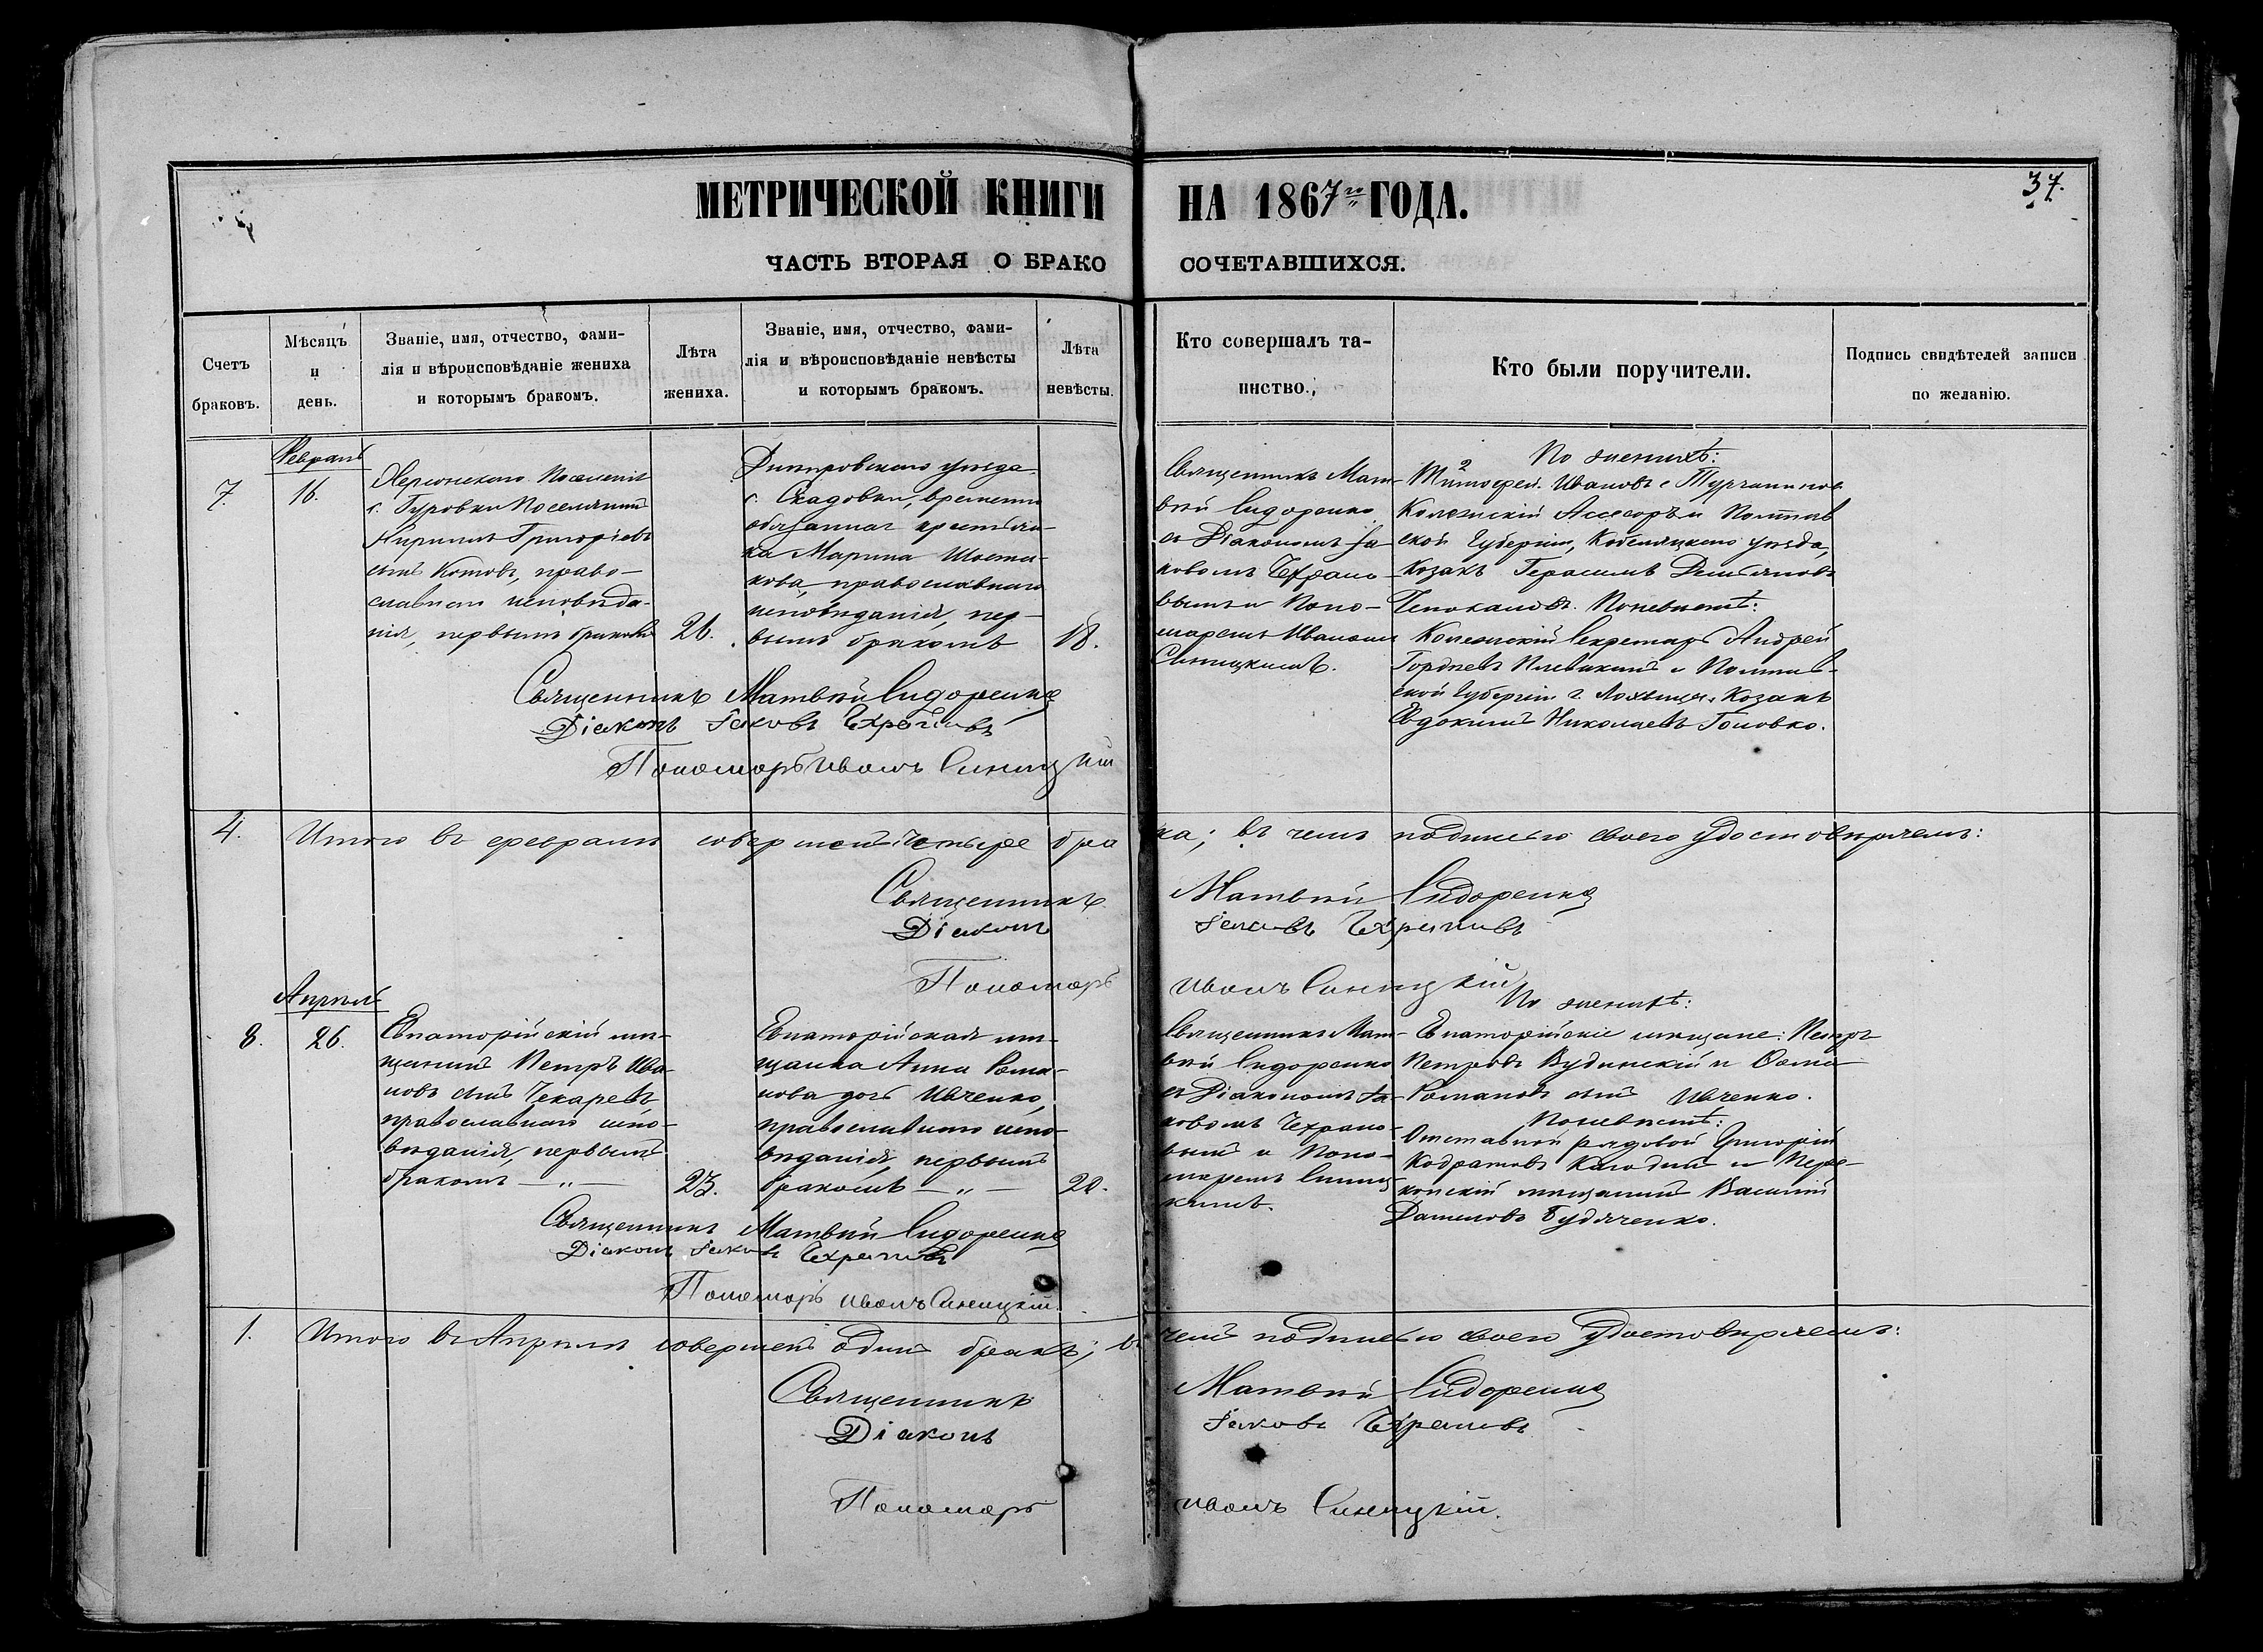 МЕТРИЧЕСКОЙ КНИГИ НА 1867го ГОДА.
37.
ЧАСТЬ ВТОРАЯ О БРАКОСОЧЕТАВШИХСЯ.
Счетъ браковъ.
Мѣсяцъ и день.
Званіе, имя, отчество, фами-
лія и вѣроисповѣданіе жениха
и которымъ бракомъ.
Лѣта жениха.
Званіе, имя, отчество, фами-
лія и вѣроисповѣданіе невѣсты
и которымъ бракомъ.
Лѣта невѣсты.
Кто совершалъ та-
инство.
Кто были поручители.
Подпись свидѣтелей записи
по желанію.
7.
Февраль
16.
Херсонскаго Поселенія
с. Гуровки Поселянинъ
Кириллъ Григоріевъ
сынъ Котовъ, право-
славнаго исповѣда-
нія, первымъ бракомъ
21.
Днѣпровскаго уѣзда
с. Скадовки, временно
обязанная крестьян-
ка Марина
кова, православнаго
исповѣданія, пер-
вымъ бракомъ
18.
Священникъ Мат-
вѣй Сидоренко
съ Діакономъ Іа-
ковомъ Чехрано-
вымъ и Поно-
маремъ Иваномъ
Синицкимъ.
По женихѣ:
Тимофей Ивановъ Турчаниновъ
Колежскій Ассесоръ и Полтав
ской Губерніи, Кобеляцкаго уѣзда,
Козакъ Герасимъ Демьяновъ
По невѣстѣ:
Колежскій Секретарь Андрей
Гордѣевъ Плевакинъ и Полтав-
ской Губерніи г. Лохвицы Козакъ
Евдокимъ Николаевъ Головко.
Священникъ Матвѣй Сидоренко
Діаконъ Іаковъ Чехрановъ
Пономарь Иванъ Синицкій
4.
Итого въ февралѣ совершено четыре брака; въ чемъ подписью своею удостовѣряемъ:
Священникъ Матвѣй Сидоренко
Діаконъ Іаковъ Чехрановъ
Пономарь Иванъ Синицкій
8.
Апрѣль
26.
Евпаторійскій мѣ-
щанинъ Петръ Ива-
новъ сынъ Чекаревъ,
православнаго испо-
вѣданія, первымъ
бракомъ — „ —
23.
Евпаторійская мѣ-
щанка Анна Рома-
нова дочь Ивченко,
православнаго испо-
вѣданія, первымъ
бракомъ — „ —
20.
Священникъ Мат-
вѣй Сидоренко
съ Діакономъ Іа-
ковомъ Чехрано-
вымъ и Поно-
маремъ Синиц-
кимъ.
По женихѣ:
Евпаторійскіе мѣщане: Петръ
Петровъ Будинскій и Фома
Романовъ сынъ Ивченко.
По невѣстѣ:
Отставной рядовой Григорій
Кодратовъ и Пере-
копскій мѣщанинъ Василій
Даниловъ Будяченко.
Священникъ Матвѣй Сидоренко
Діаконъ Іаковъ Чехрановъ
Пономарь Иванъ Синицкій.
1.
Итого въ Апрѣлѣ совершенъ одинъ бракъ; въ чемъ подписью своею удостовѣряемъ:
Священникъ Матвѣй Сидоренко
Діаконъ Іаковъ Чехрановъ
Пономарь Иванъ Синицкій.